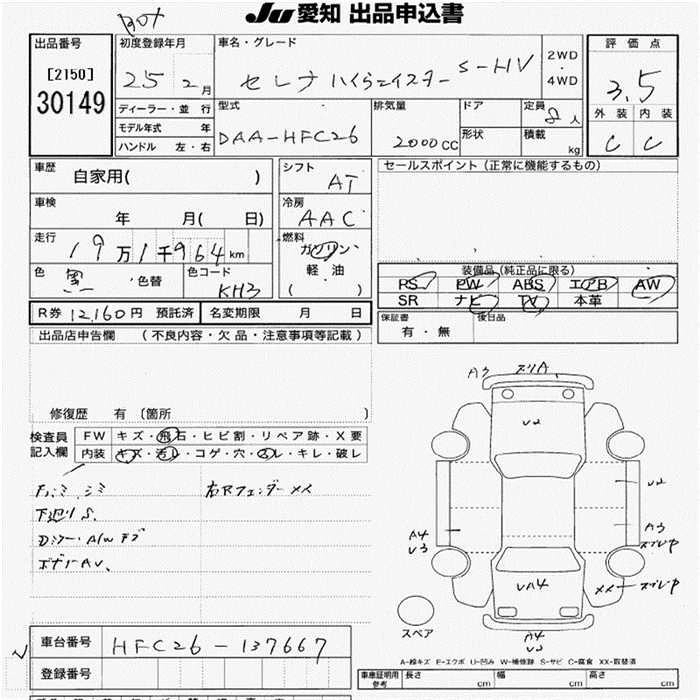 JU 愛知 出品申込書
出品番号
[2150]
30149
初度登録年月
25 2月
ディーラー・並 行
モデル年式 年
ハンドル 左・右
車名・グレード
セレナ ハイウェイスター S-HV
2WD
4WD
型式
DAA-HFC26
排気量
2000 CC
ドア
形状
定員
8人
積載
kg
評価点
3.5
外装 内装
C C
車歴
自家用( )
車検
年 月( 日)
走行
19万1千964km
色
黒 色替
色コード
KH3
シフト
AT
冷房
AAC
燃料
ガソリン
軽油
( )
セールスポイント(正常に機能するもの)
装備品(純正品に限る)
PS PW ABS エアB AW
SR ナビ TV 本革
R券 12,160円 預託済 名変期限 月 日
保証書
有・無
後日品
出品店申告欄 (不良内容・欠品・注意事項等記載)
修復歴 有 〔箇所 〕
検査員
記入欄
FW キズ・飛石・ヒビ割・リペア跡・X要
内装 キズ・汚レ・コゲ・穴・スレ・キレ・破レ
右Rフェンダーメメ
下廻りS.
A3
スリA
U2
U2
A4
U3
A3
スレP
XX スレP
UA4
A4
U3
スペア
A-線キズ E-エクボ U-凹み W-補修跡 S-サビ C-腐食 XX-取替済
車台番号
HFC26-137667
登録番号
車庫証明用
参考
長さ 幅 高さ
cm cm cm